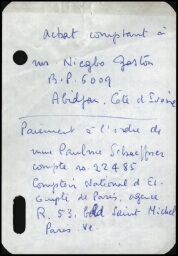 achat comptant à
mr Niegbo Gaston
B.P. 6009
Abidjan. Côte d'Ivoire
Paiement à l'ordre de
mme Pauline Schaeffner
compte no 22485
Comptoir National d'Es-
compte de Paris, agence
R. 53. Bld Saint Michel
Paris Ve